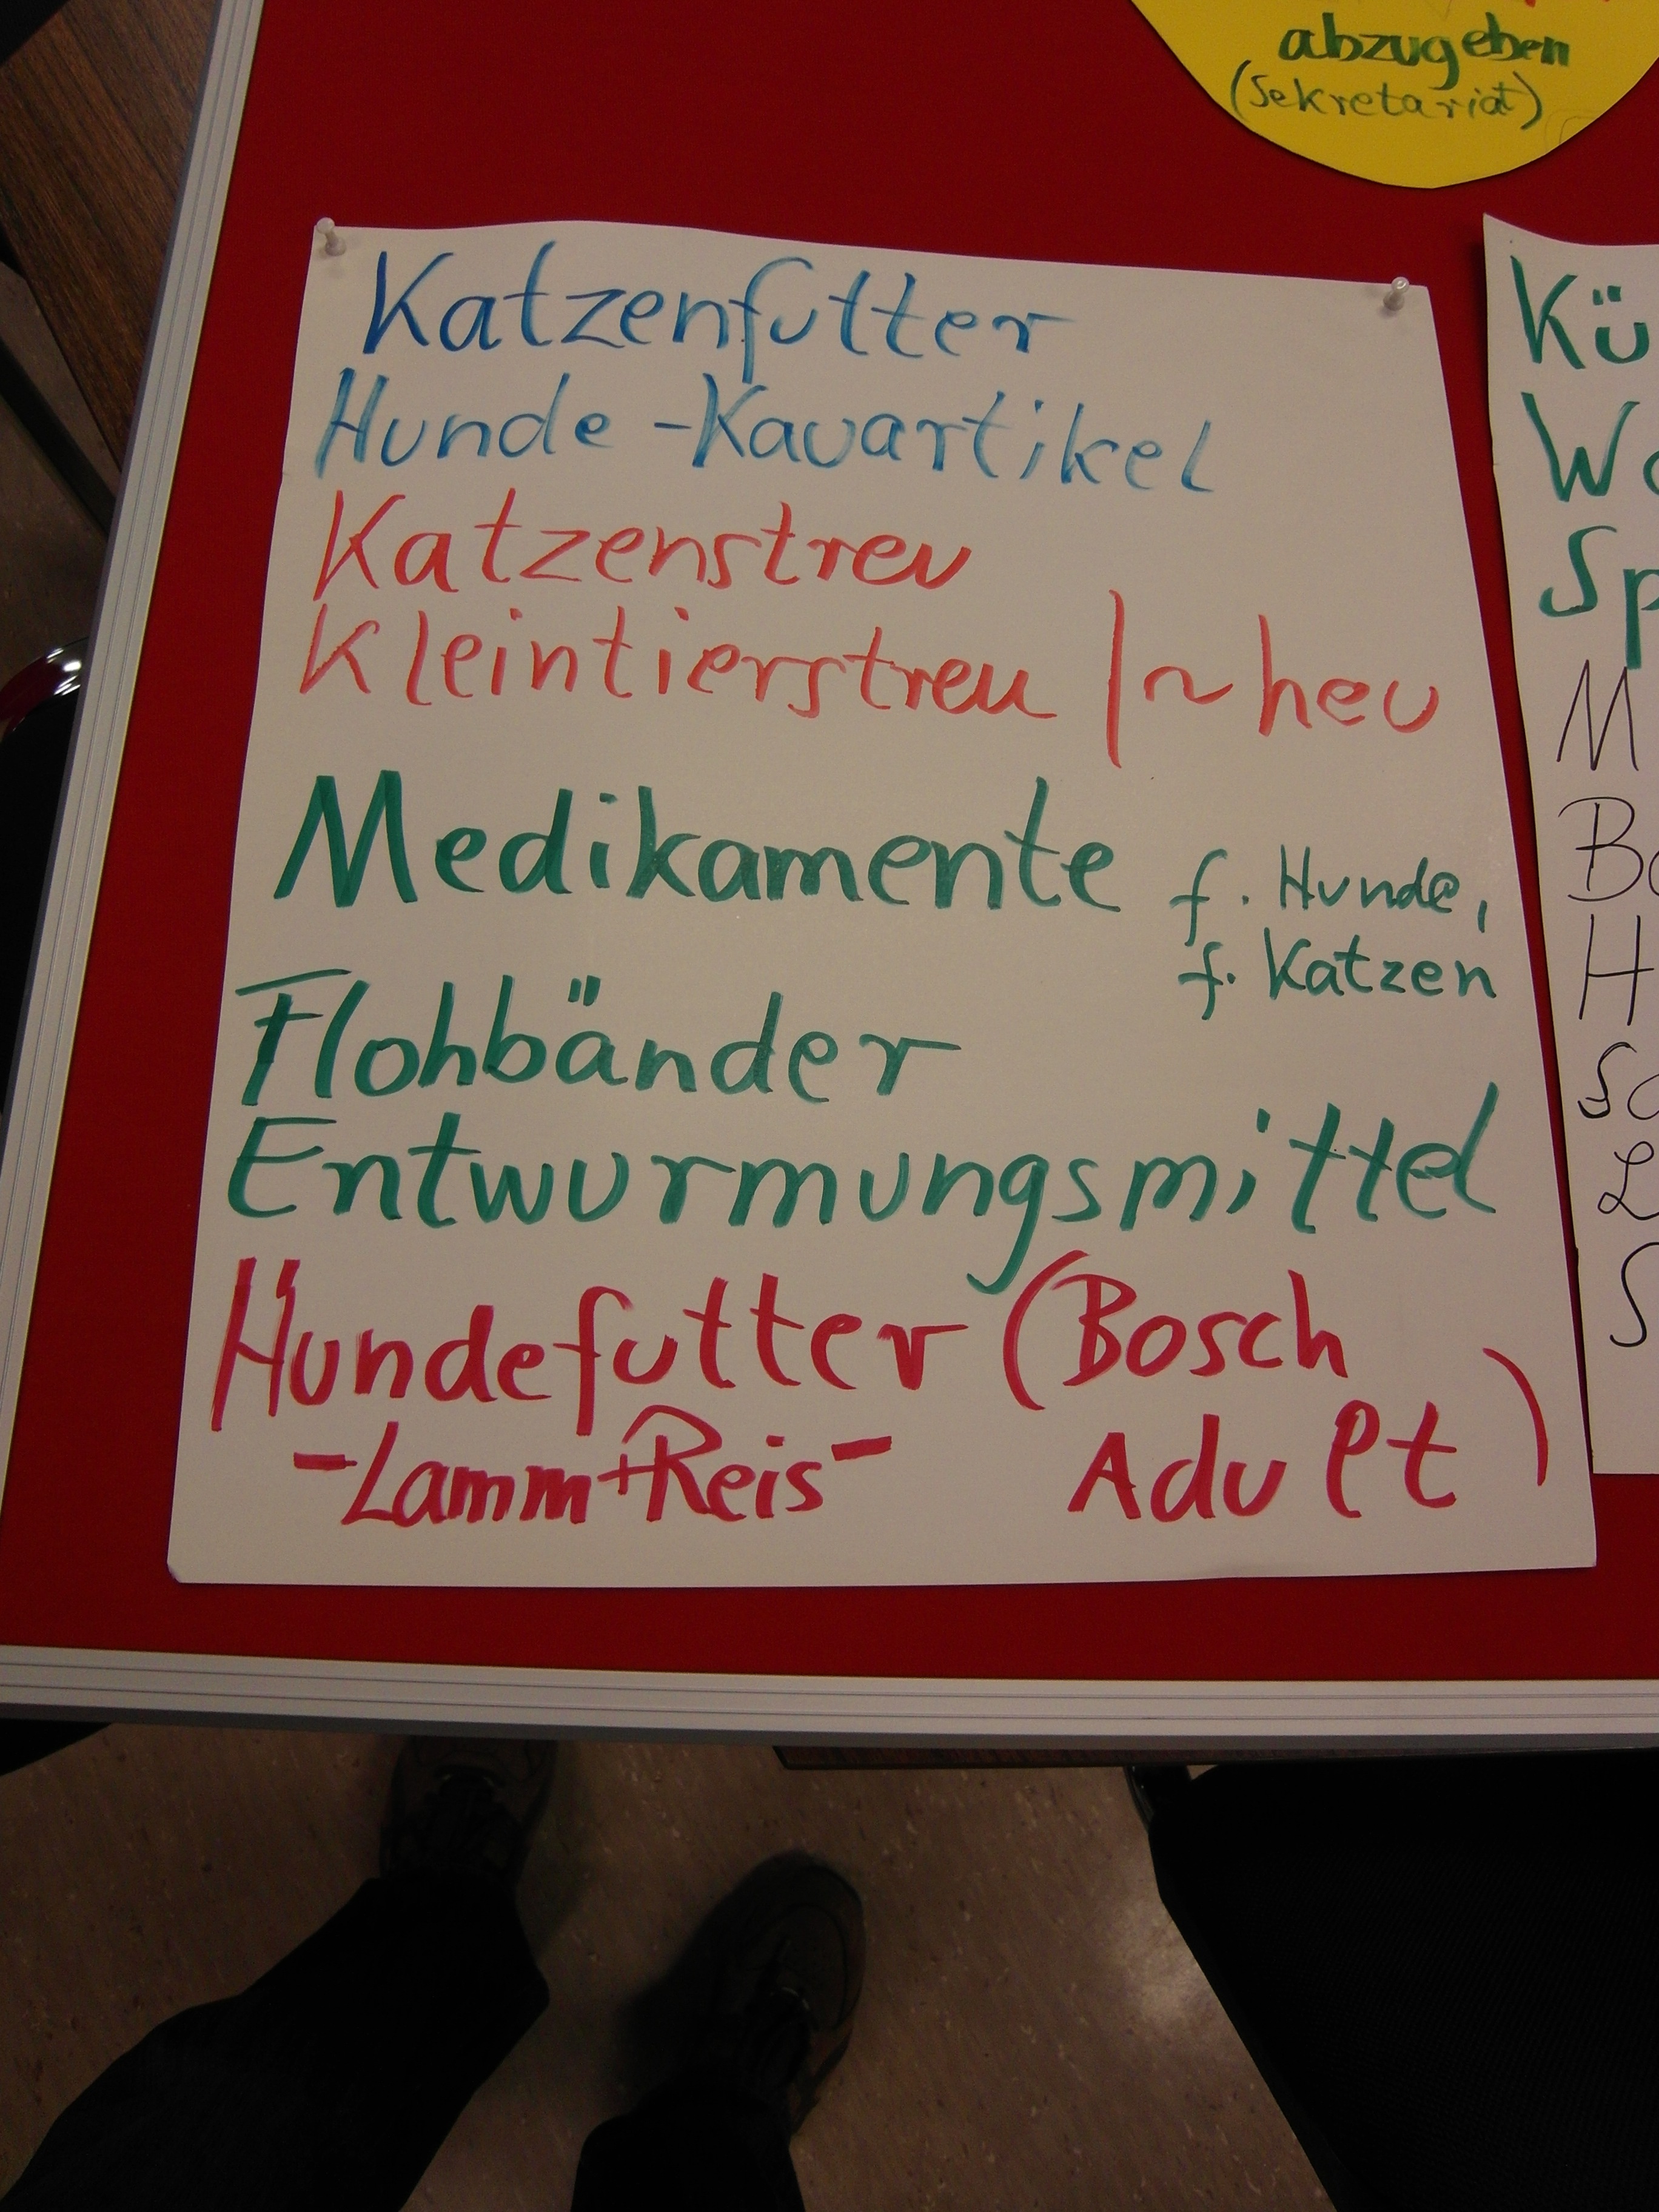 abzugeben
(Sekretariat)
Katzenfutter
Hunde-Kauartikel
Katzenstreu
Kleintierstreu /~heu
Medikamente f. Hunde,
f. Katzen
Flohbänder
Entwurmungsmittel
Hundefutter (Bosch
-Lamm+Reis- Adult)
Kü
Sp
M
H
L
S